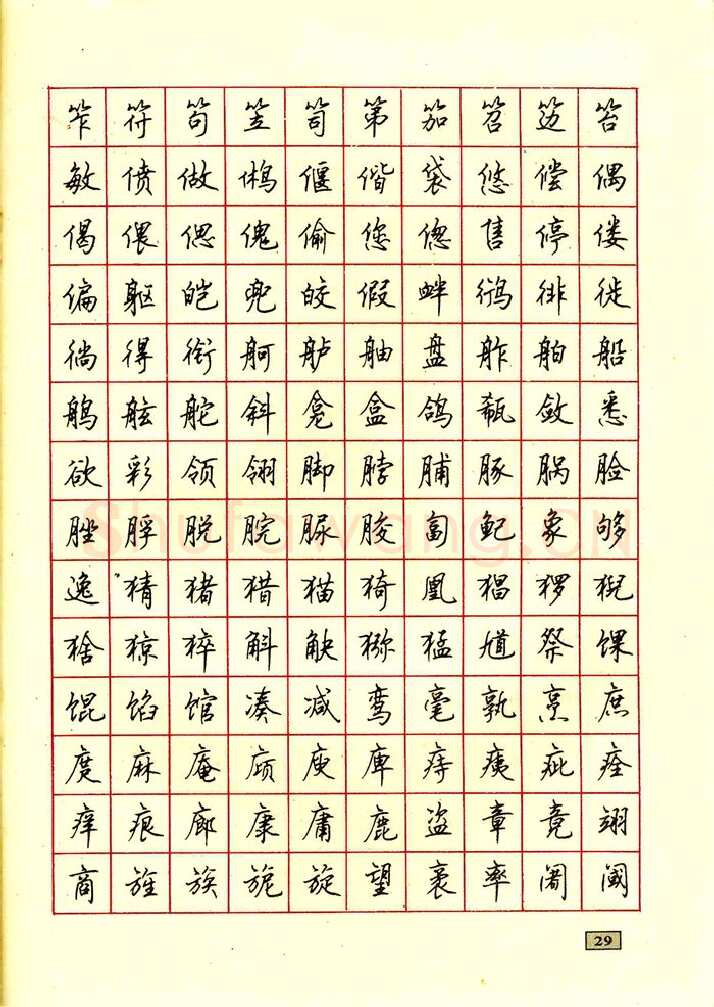 笮符笱笠笥第笳笤笾笞
敏偾做鸺偃偕袋悠偿偶
偈偎偲傀偷您偬售停偻
偏躯皑兜皎假衅鸻徘徙
徜得衔舸舻舳盘舴舶船
鸼舷舵斜龛盒鸽瓻敛悉
欲彩领翎脚脖脯豚脶脸
脞脬脱脘脲朘匐鱾象够
Shufawang.CN
逸猜猪猎猫猗凰猖猡猊
猞猄猝斛觖猕猛馗祭馃
馄馅馆凑减鸾毫孰烹庶
庹麻庵庼庾庳痔痍疵痊
痒痕廊康庸鹿盗章竟翊
商旌族旎旋望袤率阇阈
29